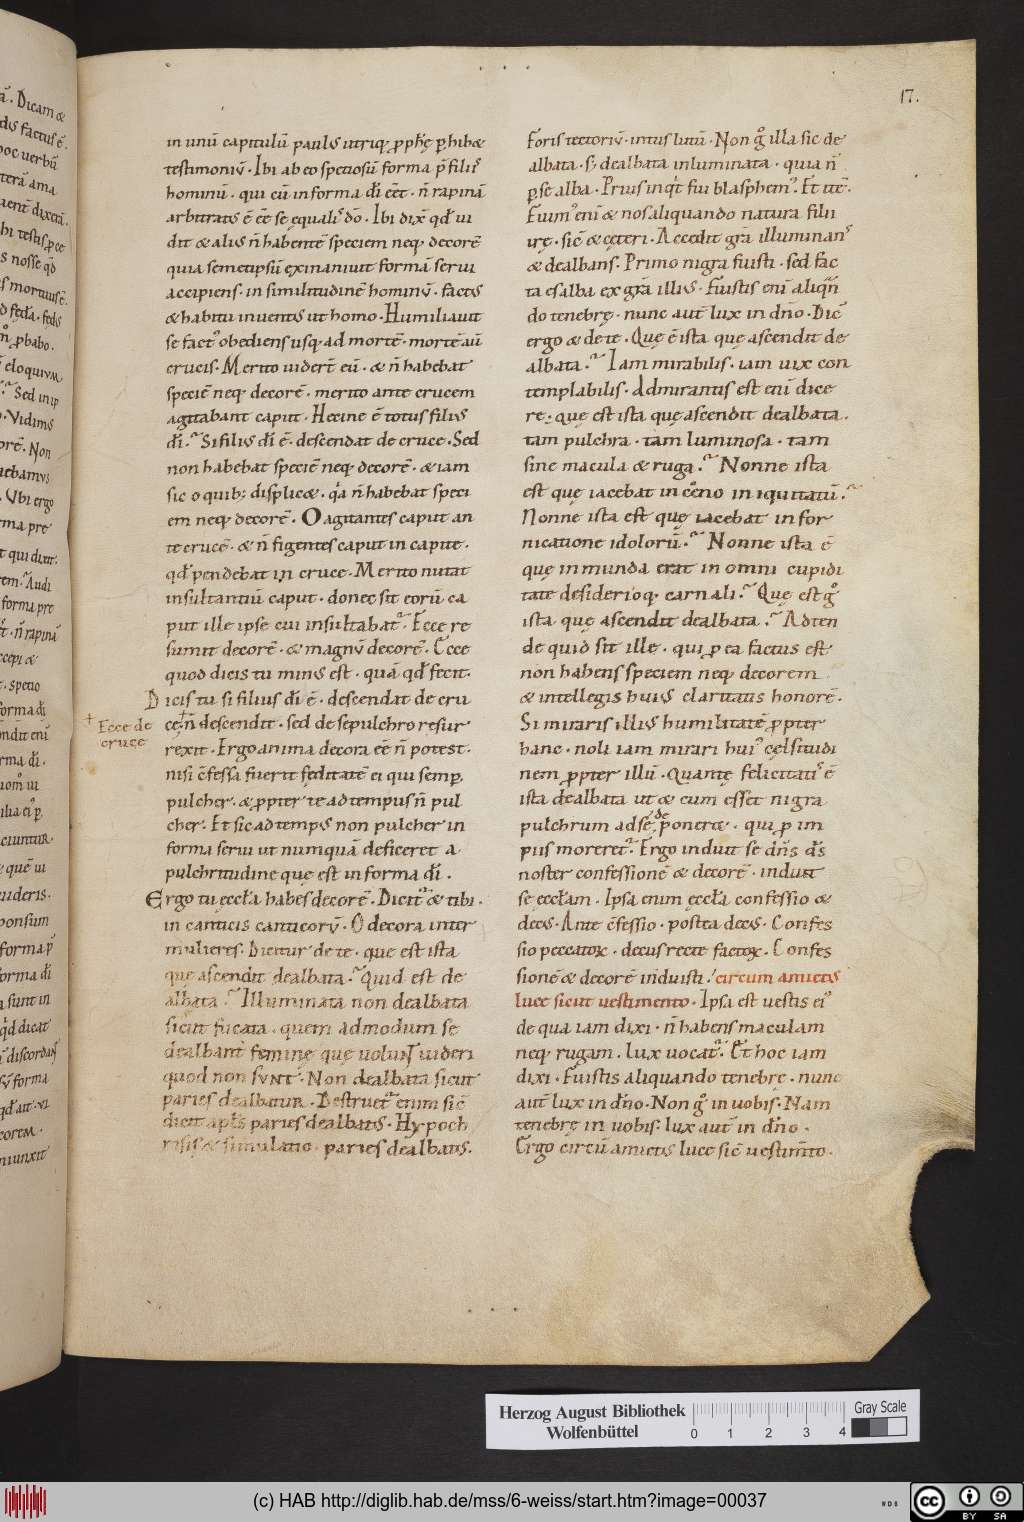 17.
in unū capitulū paulꝰ utriq; ꝓph̄ę ꝑhibꝫ
testimoniū. Ibi ab eo speciosū forma p̄ filiꝭ
hominū. qui cū in forma dī eēt. n̄ rapinā
arbitratꝰ ē eē se equaliꝭ dō. Ibi dix̄ qd̄ ui
dit & aliꝰ n̄ habentē speciem neq; decorē
quia semetipsū exinaniuit formā serui
accipiens. in similitudinē hominū. factꝰ
& habitu inuentꝰ ut homo. Humiliauit
se factꝰ obediens usq; ad mortē. mortē aū
crucis. Merito uidert̄ eū. & n̄ habebat
speciē neq; decorē. merito ante crucem
agitabant caput. Hecine ē totus filiꝰ
dī. Si filiꝰ dī ē. descendat de cruce. Sed
non habebat speciē neq; decorē. & iam
sic o quib; displicꝫ. qa n̄ habebat speci
em neq; decorē. O agitantes caput an
te crucē. & n̄ figentes caput in capite.
qd̄ pendebat in cruce. Merito nutat
insultantiū caput. donec sit eorū ca
put ille ipse cui insultabat. Ecce re
sumit decorē. & magnū decorē. Ecce
quod dicis tu minꝰ est. quā qd̄ fecit.
Dicis tu si filius dī ē. descendat de cru
ce. n̄ descendit. sed de sepulchro resur
+ Ecce de
cruce
rexit. Ergo anima decora eē n̄ potest.
nisi c̄fessa fuerit feditatē ei qui semꝑ
pulcher. & ꝓpter te ad tempus n̄ pul
cher. Et sic ad tempꝰ non pulcher in
forma serui ut numquā deficeret a
pulchritudine que est in forma dī.
Ergo tu eccła habes decorē. Dicit̄ & tibi.
in canticis canticorū. O decora inter
mulieres. Dicitur de te. que est ista
que ascendit dealbata. Quid est de
albata. Illuminata non dealbata
sicut fucata. quem admodum se
dealbant femine que uolunt uideri
quod non sunt. Non dealbata sicut
paries dealbatur. Destruet enim sic̄
dicit apłs paries dealbatꝰ. Hypoch
risis & simulatio. paries dealbatꝰ.
foris tectoriū. intus lutū. Non gͦ illa sic de
albata. s; dealbata inluminata. quia n̄
ꝑ se alba. Prius inqt fui blasphemꝰ. Et itē.
Fuimꝰ enī & nos aliquando natura filii
irę. sic̄ & cęteri. Accedit grā illuminanꝭ
& dealbans. Primo nigra fuisti. sed fac
ta es alba ex grā illiꝰ. Fuistis enī aliqn̄
do tenebrę. nunc aut̄ lux in dn̄o. Dic̄
ergo & de te. Quę ē ista quę ascendit de
albata. Iam mirabilis. iam uix con
templabilis. Admirantis est enī dice
re. quę est ista quę ascendit dealbata.
tam pulchra. tam luminosa. tam
sine macula & ruga. Nonne ista
est quę iacebat in cęno iniquitatū.
Nonne ista est quę iacebat in for
nicatione idolorū. Nonne ista ē
quę inmunda erat in omni cupidi
tate desiderioq; carnali. Quę est gͦ
ista quę ascendit dealbata. Adten
de quid sit ille. qui ꝓ ea factus est
non habens speciem neq; decorem
& intellegis huiꝰ claritatis honorē.
Si miraris illiꝰ humilitatē ꝓpter
hanc. noli iam mirari huiꝰ celsitudi
nem ꝓpter illū. Quantę felicitatiꝭ ē
ista dealbata ut & cum esset nigra
pulchrum ad se deponeret. qui ꝓ im
piis moreret̄. Ergo induit se dn̄s d̄s
noster confessionē & decorē. induit
se eccłam. Ipsa enim eccła confessio &
decꝰ. Ante c̄fessio. postea decꝰ. Confes
sio peccatoꝝ. decus recte factoꝝ. Confes
sionē & decorē induisti. circum amictꝰ
luce sicut uestimento. Ipsa est uestis eiꝰ
de qua iam dixi. n̄ habens maculam
neq; rugam. lux uocat̄. Et hoc iam
dixi. Fuistis aliquando tenebrę. nunc
aut̄ lux in dn̄o. Non gͦ in uobis. Nam
tenebrę in uobis. lux aut̄ in dn̄o.
Ergo circū amictꝰ luce sic̄ uestim̄to.
Herzog August Bibliothek
Wolfenbüttel
0 1 2 3 4
Gray Scale
(c) HAB http://diglib.hab.de/mss/6-weiss/start.htm?image=00037
cc BY SA